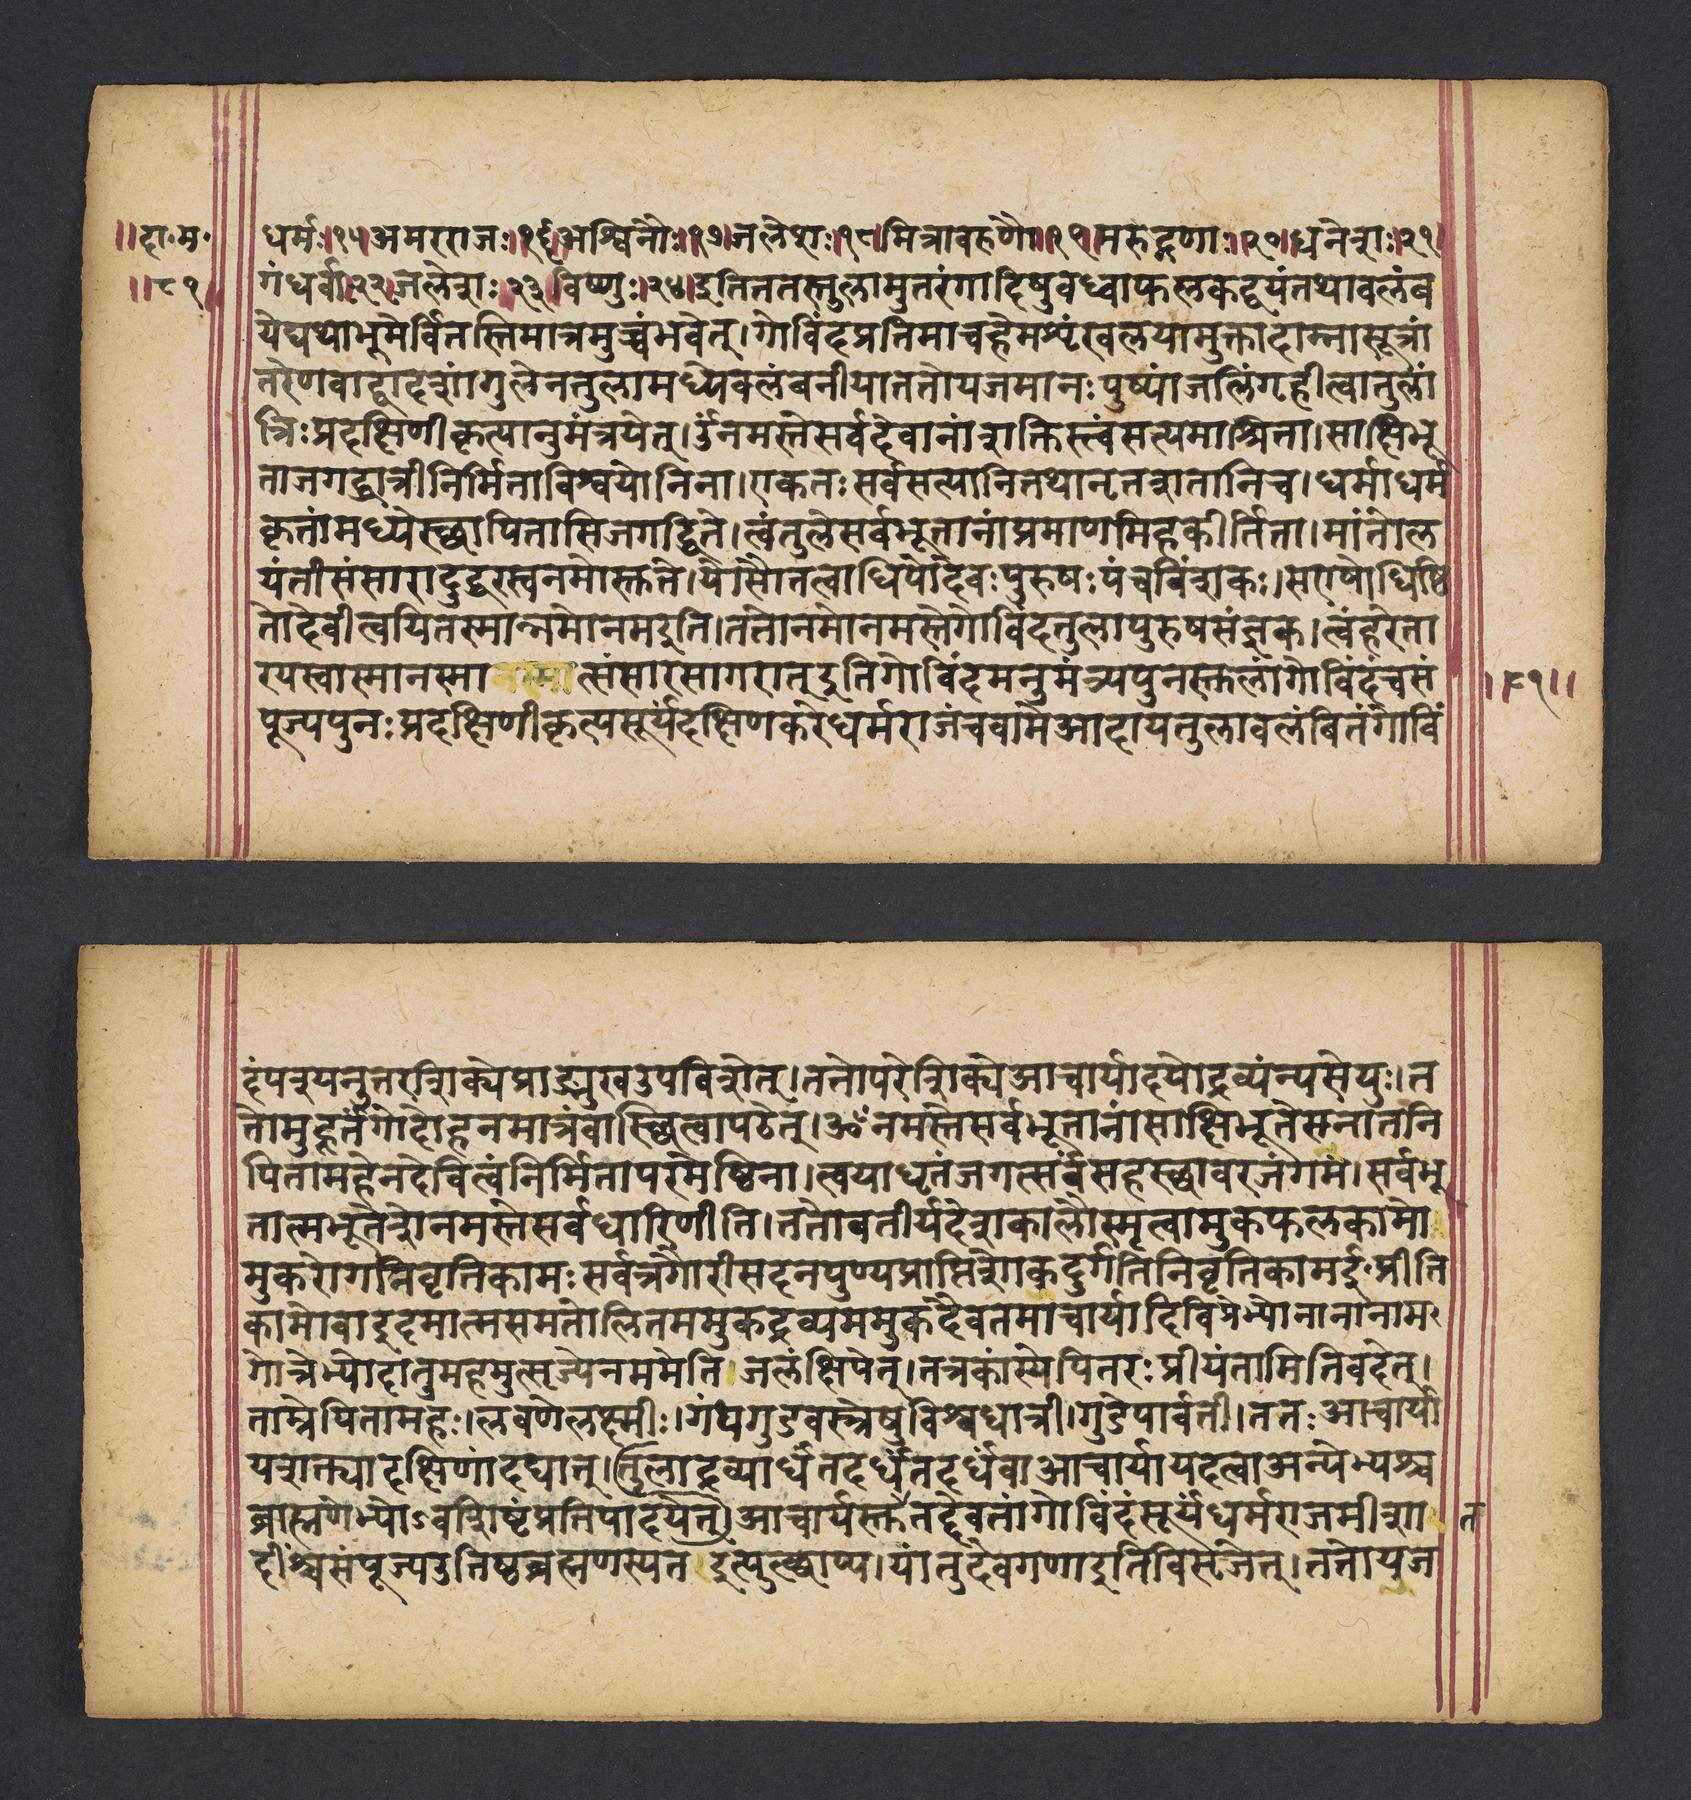 ॥दा॰म॰
॥८९
धर्मः।१५।अमरराजः।१६।अश्विनौ।१७।जलेशः।१८।मित्रावरुणौ।१९।मरुद्गणाः।२०।धनेशः।२१।
गंधर्वा।२२।जलेशः।२३।विष्णुः।२४।इतिततस्तुलामुतरंगादिषुबध्वाफलकद्वयंतथावलंब
येद्यथाभूमेर्वितस्तिमात्रमुच्चंभवेत्।गोविंदप्रतिमाचहैमशृंखलयामुक्तादाम्नासूत्रां
तरेणवाद्वादशांगुलेनतुलामध्येवलंबनीयाततोयजमानःपुष्पांजलिंगृहीत्वातुलां
त्रिःप्रदक्षिणीकृत्यानुमंत्रयेत्।ॐनमस्तेसर्वदेवानांशक्तिस्त्वंसत्यमाश्रिता।साक्षिभू
ताजगद्धात्रीनिर्मिताविश्वयोनिना।एकतःसर्वसत्यानितथानृतशतानिच।धर्माधर्म
कृतांमध्येस्छापितासिजगद्धिते।त्वंतुलेसर्वभूतानांप्रमाणमिहकीर्तिता।मांतोल
यंतीसंसारादुद्धरस्वनमोस्तुते।योसौतत्वाधिपोदेवःपुरुषःपंचविंशकः।सएषोधिष्ठि
तोदेवीत्वयितस्मान्नमोनमइति।ततोनमोनमस्तेगोविंदतुलापुरुषसंज्ञक।त्वंहरेता
रयस्वास्मानस्मा त्संसारसागरात्इतिगोविंदमनुमंत्र्यपुनस्तुलांगोविंदंचसं
॥८९॥
पूज्यपुनःप्रदक्षिणीकृत्यसूर्यदक्षिणकरेधर्मराजंचवामेआदायतुलावलंबितंगोविं
दंपश्यनुत्तरशिक्येप्राङ्मुखउपविशेत्।ततोपरेशिक्येआचार्यादयोद्रव्यंन्यसेयुः।त
तोमुहूर्तंगोदोहनमात्रंवास्छित्वापठेत्।ॐनमस्तेसर्वभूतानांसाक्षिभूतेसनातनि
पितामहेनदेवित्वंनिर्मितापरमेष्ठिना।त्वयाधृतंजगत्सर्वंसहस्छावरजंगमं।सर्वभू
तात्मभूतेशेनमस्तेसर्वधारिणीति।ततोवतीर्यदेशकालौस्मृत्वामुकफलकामो
मुकरोगन्निवृतिकामःसर्वत्रगौरीसदनपुण्यप्राप्तिशोकदुर्गतिनिवृतिकामईप्रीति
कामोवाइदमात्मसमतोलितममुकद्रव्यममुकदैवतमाचार्यादिविप्रेभ्योनानानाम॰
गोत्रेभ्योदातुमहमुत्सृज्येनममेति जलंक्षिपेत्।तत्रकांस्येपितरःप्रीयंतामितिवदेत्।
ताम्रेपितामहः।लवणेलक्ष्मीः।गंधगुडवस्त्रेषुविश्वधात्री।गुडेपार्वती।ततःआचार्या
यशक्त्यादक्षिणांदद्यात्।(तुलाद्रव्यार्धंतदर्धंतदर्धंवाआचार्यायदत्वाअन्येभ्यश्च
ब्राह्मणेभ्योऽवशिष्टंप्रतिपादयेत्)आचार्यस्तुतद्देवतांगोविंदंसूर्यंधर्मराजमीशा
त
दींश्चसंपूज्यउतिष्ठब्रह्मणस्पत इत्युत्छाप्य।यांतुदेवगणाइतिविसृजेत्।ततोयज